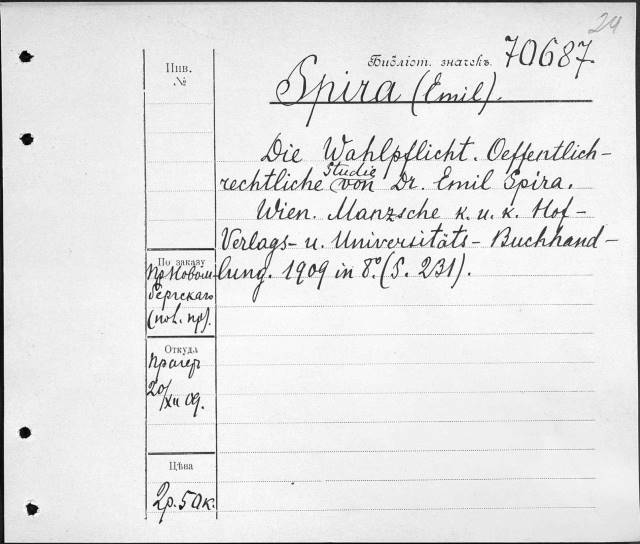 24
Инв.
№
Библіот. значекъ. 70687.
Spira (Emil).
Die Wahlpflicht. Oeffentlich-
rechtliche Studie von Dr. Emil Spira.
Wien. Manzsche k. u. k. Hof-
Verlags- u. Universitäts- Buchhand-
lung. 1909 in 8º. (S. 231).
По заказу
пр.
бергскаго
Откуда
Прагеръ
20/XII 09.
Цѣна
2р. 50к.